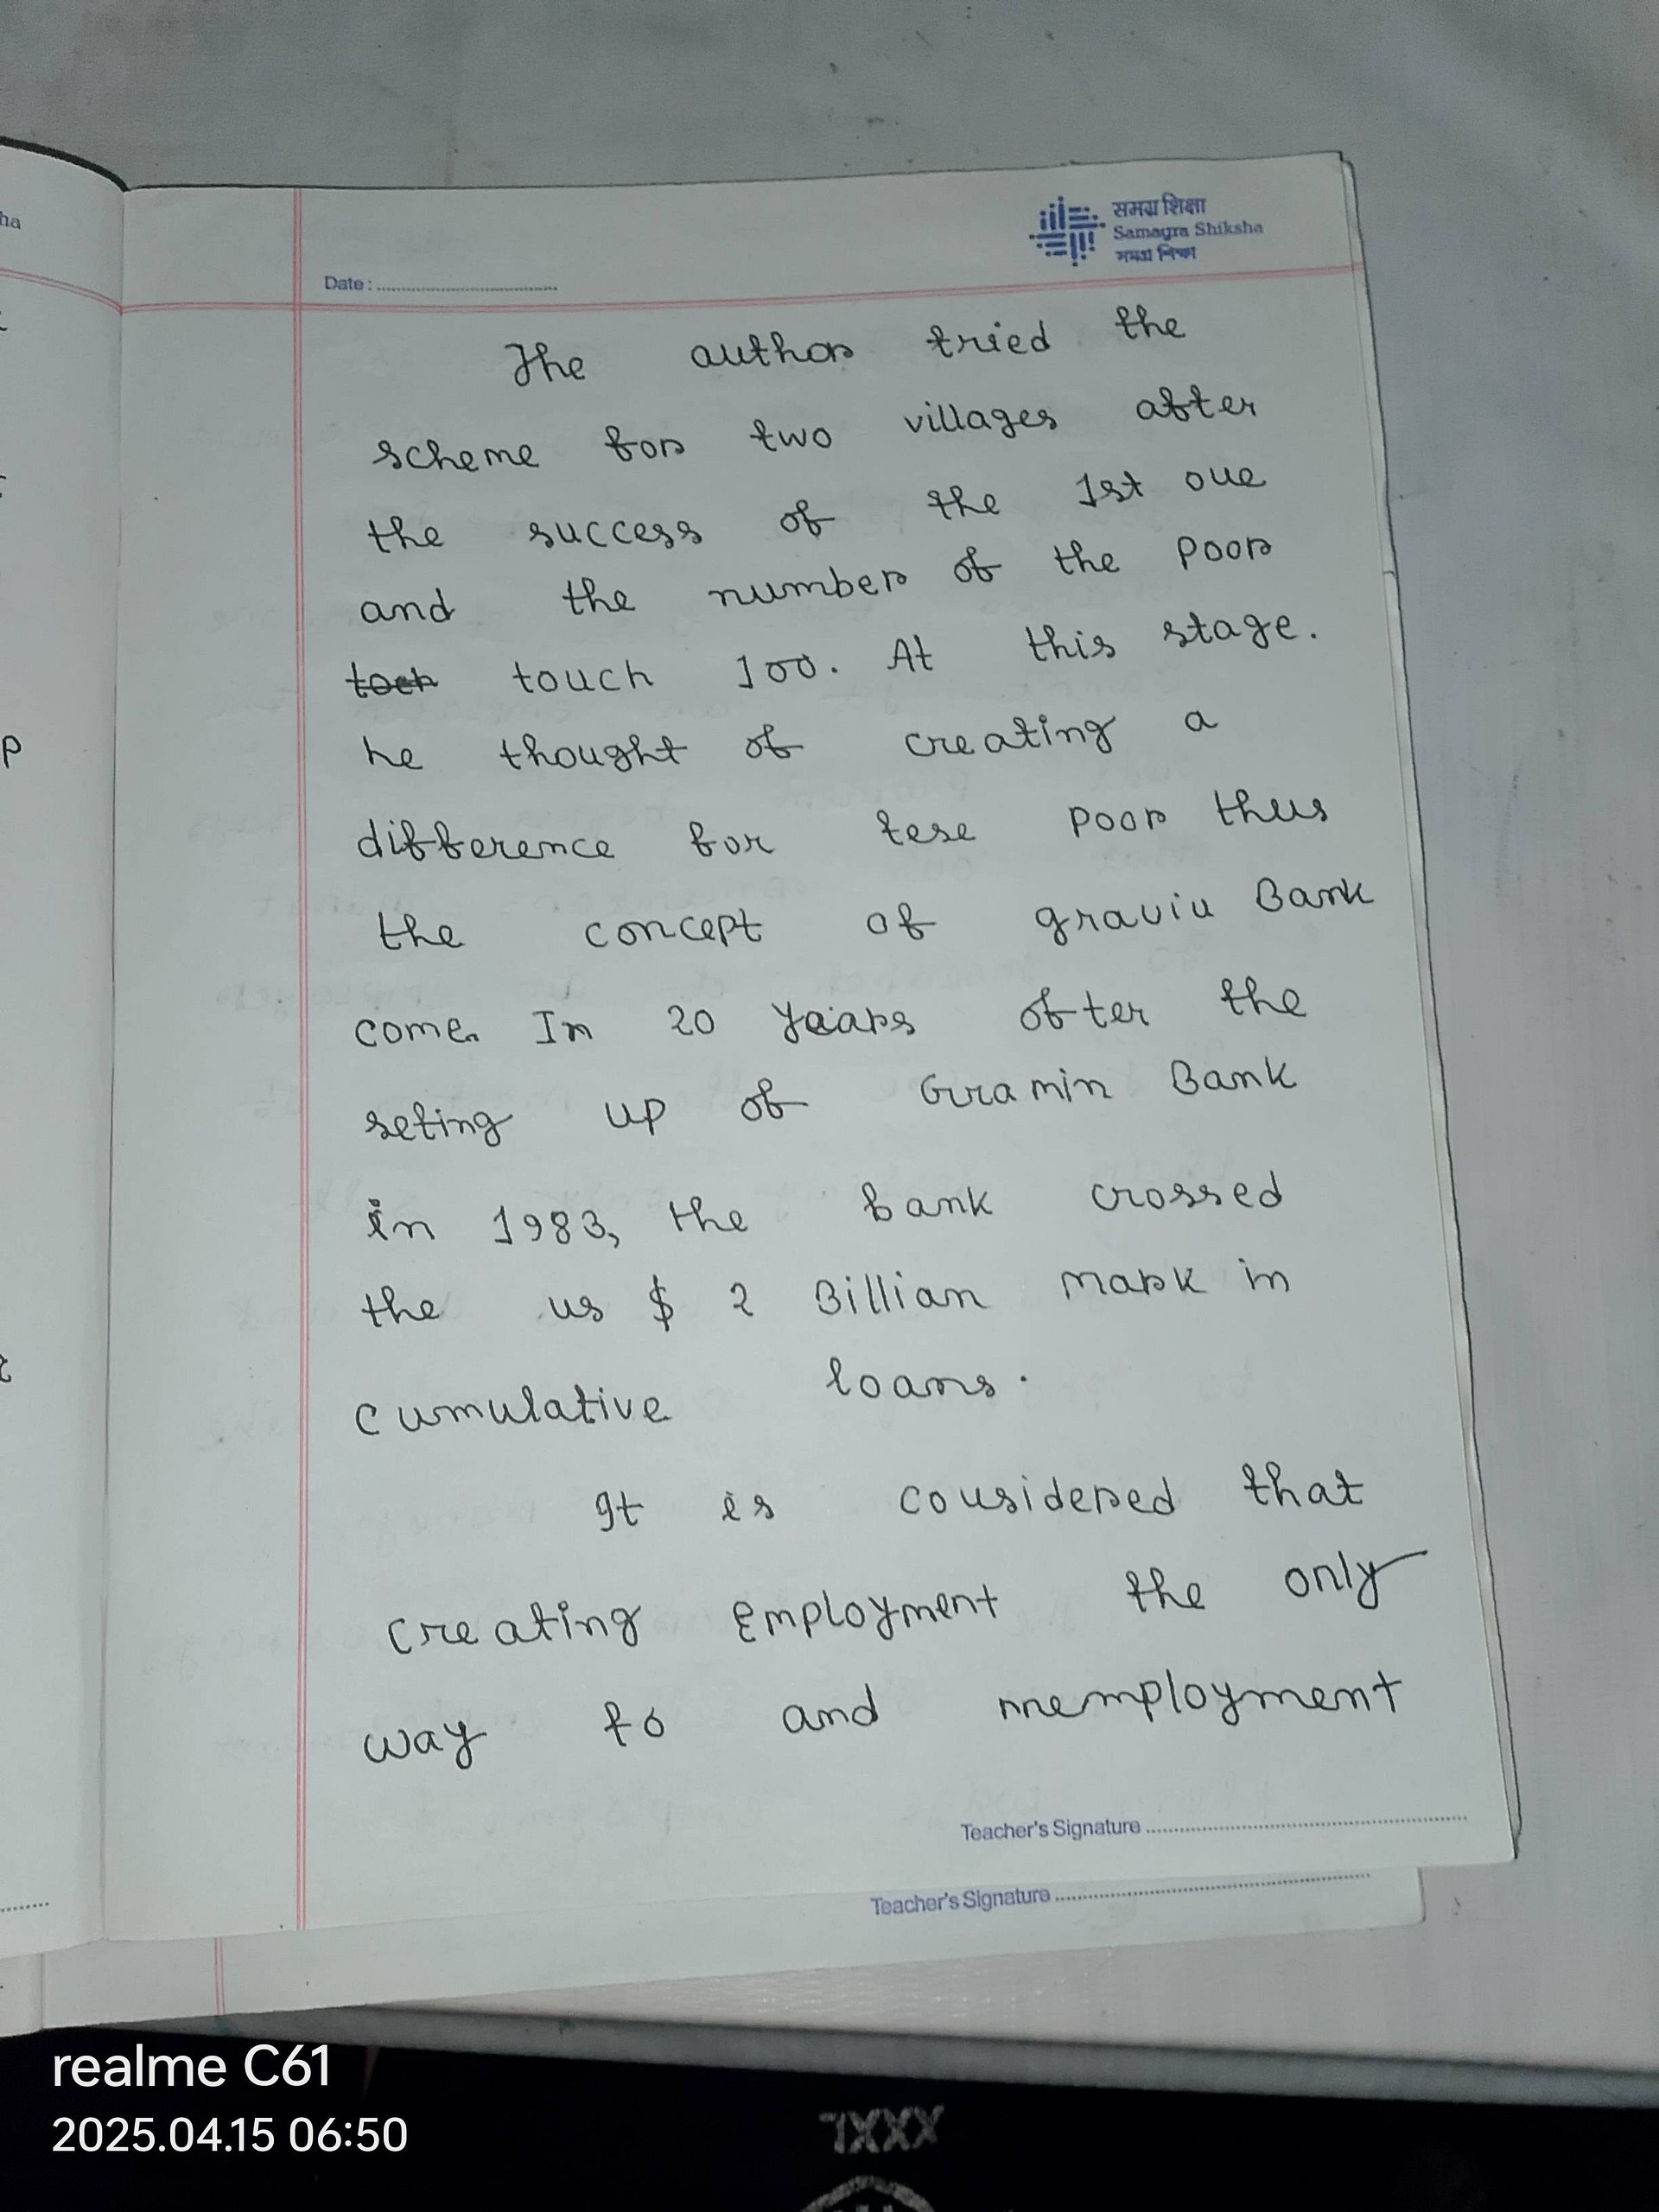 ha
समग्र शिक्षा
Samagra Shiksha
সমগ্র শিক্ষা
Date :
The author tried the
scheme for two villages after
the success of the 1st oue
and the number of the poor
toch touch 100. At this stage.
he thought of creating a
difference for tese poor thus
the concept of graviu Bank
come. In 20 years ofter the
seting up of Gramin Bank
in 1983, the bank crossed
the us $ 2 Billian mark in
cumulative loans.
It is cousidered that
creating Employment the only
way to and nnemployment
Teacher's Signature
Teacher's Signature
realme C61
2025.04.15 06:50